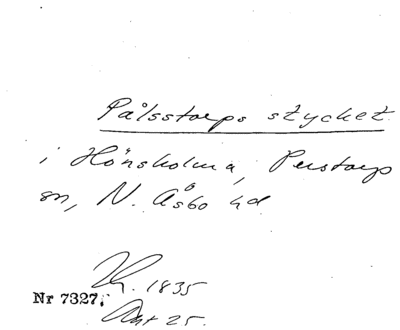 Pålstorps stycket
i Hönsholma, Perstorps
sn, N. Åsbo hd
1835
Nr 7327.
Akt 25.